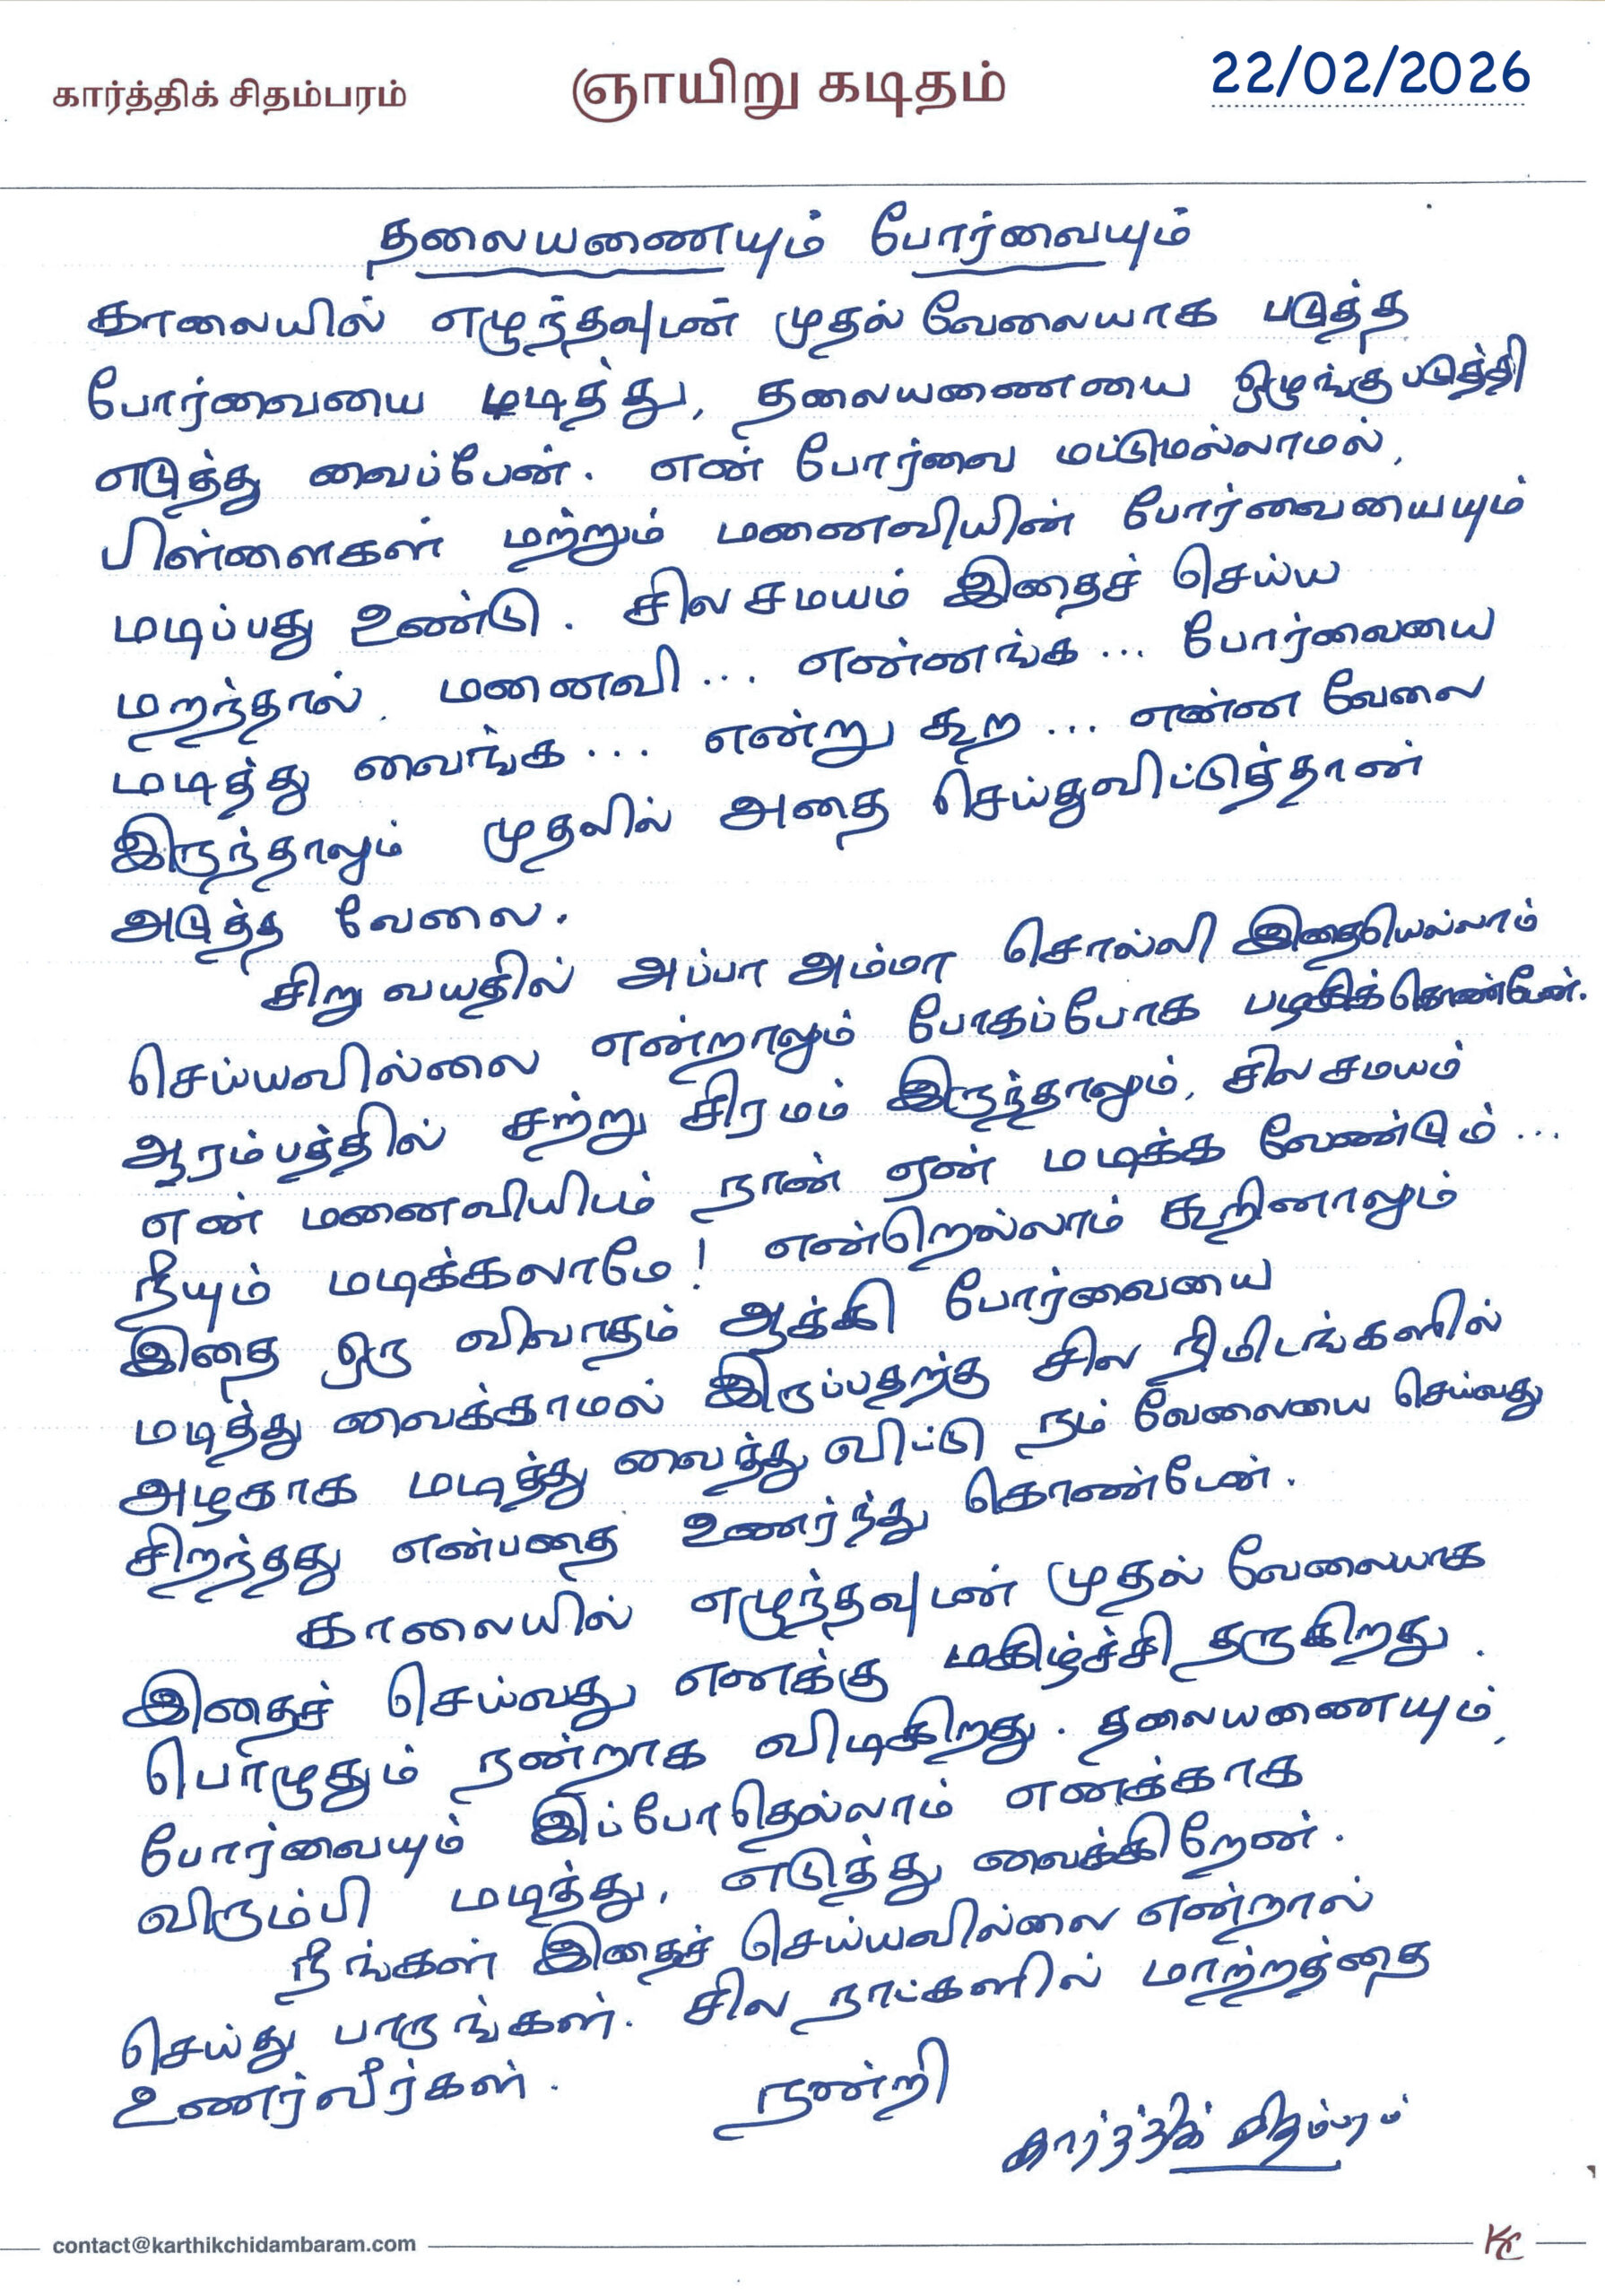 கார்த்திக் சிதம்பரம்
ஞாயிறு கடிதம்
22/02/2026
தலையணையும் போர்வையும்
காலையில் எழுந்தவுடன் முதல் வேலையாக படுத்த
போர்வையை மடித்து, தலையணையை ஒழுங்குபடுத்தி
எடுத்து வைப்பேன். என் போர்வை மட்டுமல்லாமல்,
பிள்ளைகள் மற்றும் மனைவியின் போர்வையையும்
மடிப்பது உண்டு. சில சமயம் இதைச் செய்ய
மறந்தால், மனைவி... என்னங்க... போர்வையை
மடித்து வைங்க... என்று கூற... என்ன வேலை
இருந்தாலும் முதலில் அதை செய்துவிட்டுத்தான்
அடுத்த வேலை.
சிறு வயதில் அப்பா அம்மா சொல்லி இதையெல்லாம்
செய்யவில்லை என்றாலும் போகப்போக பழகிக்கொண்டேன்.
ஆரம்பத்தில் சற்று சிரமம் இருந்தாலும், சில சமயம்
என் மனைவியிடம் நான் ஏன் மடிக்க வேண்டும்...
நீயும் மடிக்கலாமே! என்றெல்லாம் கூறினாலும்
இதை ஒரு விவாதம் ஆக்கி போர்வையை
மடித்து வைக்காமல் இருப்பதற்கு சில நிமிடங்களில்
அழகாக மடித்து வைத்து விட்டு நம் வேலையை செய்வது
சிறந்தது என்பதை உணர்ந்து கொண்டேன்.
காலையில் எழுந்தவுடன் முதல் வேலையாக
இதைச் செய்வது எனக்கு மகிழ்ச்சி தருகிறது.
பொழுதும் நன்றாக விடிகிறது. தலையணையும்,
போர்வையும் இப்போதெல்லாம் எனக்காக
விரும்பி மடித்து, எடுத்து வைக்கிறேன்.
நீங்கள் இதைச் செய்யவில்லை என்றால்
செய்து பாருங்கள். சில நாட்களில் மாற்றத்தை
உணர்வீர்கள்.
நன்றி
கார்த்திக் சிதம்பரம்
contact@karthikchidambaram.com
KC